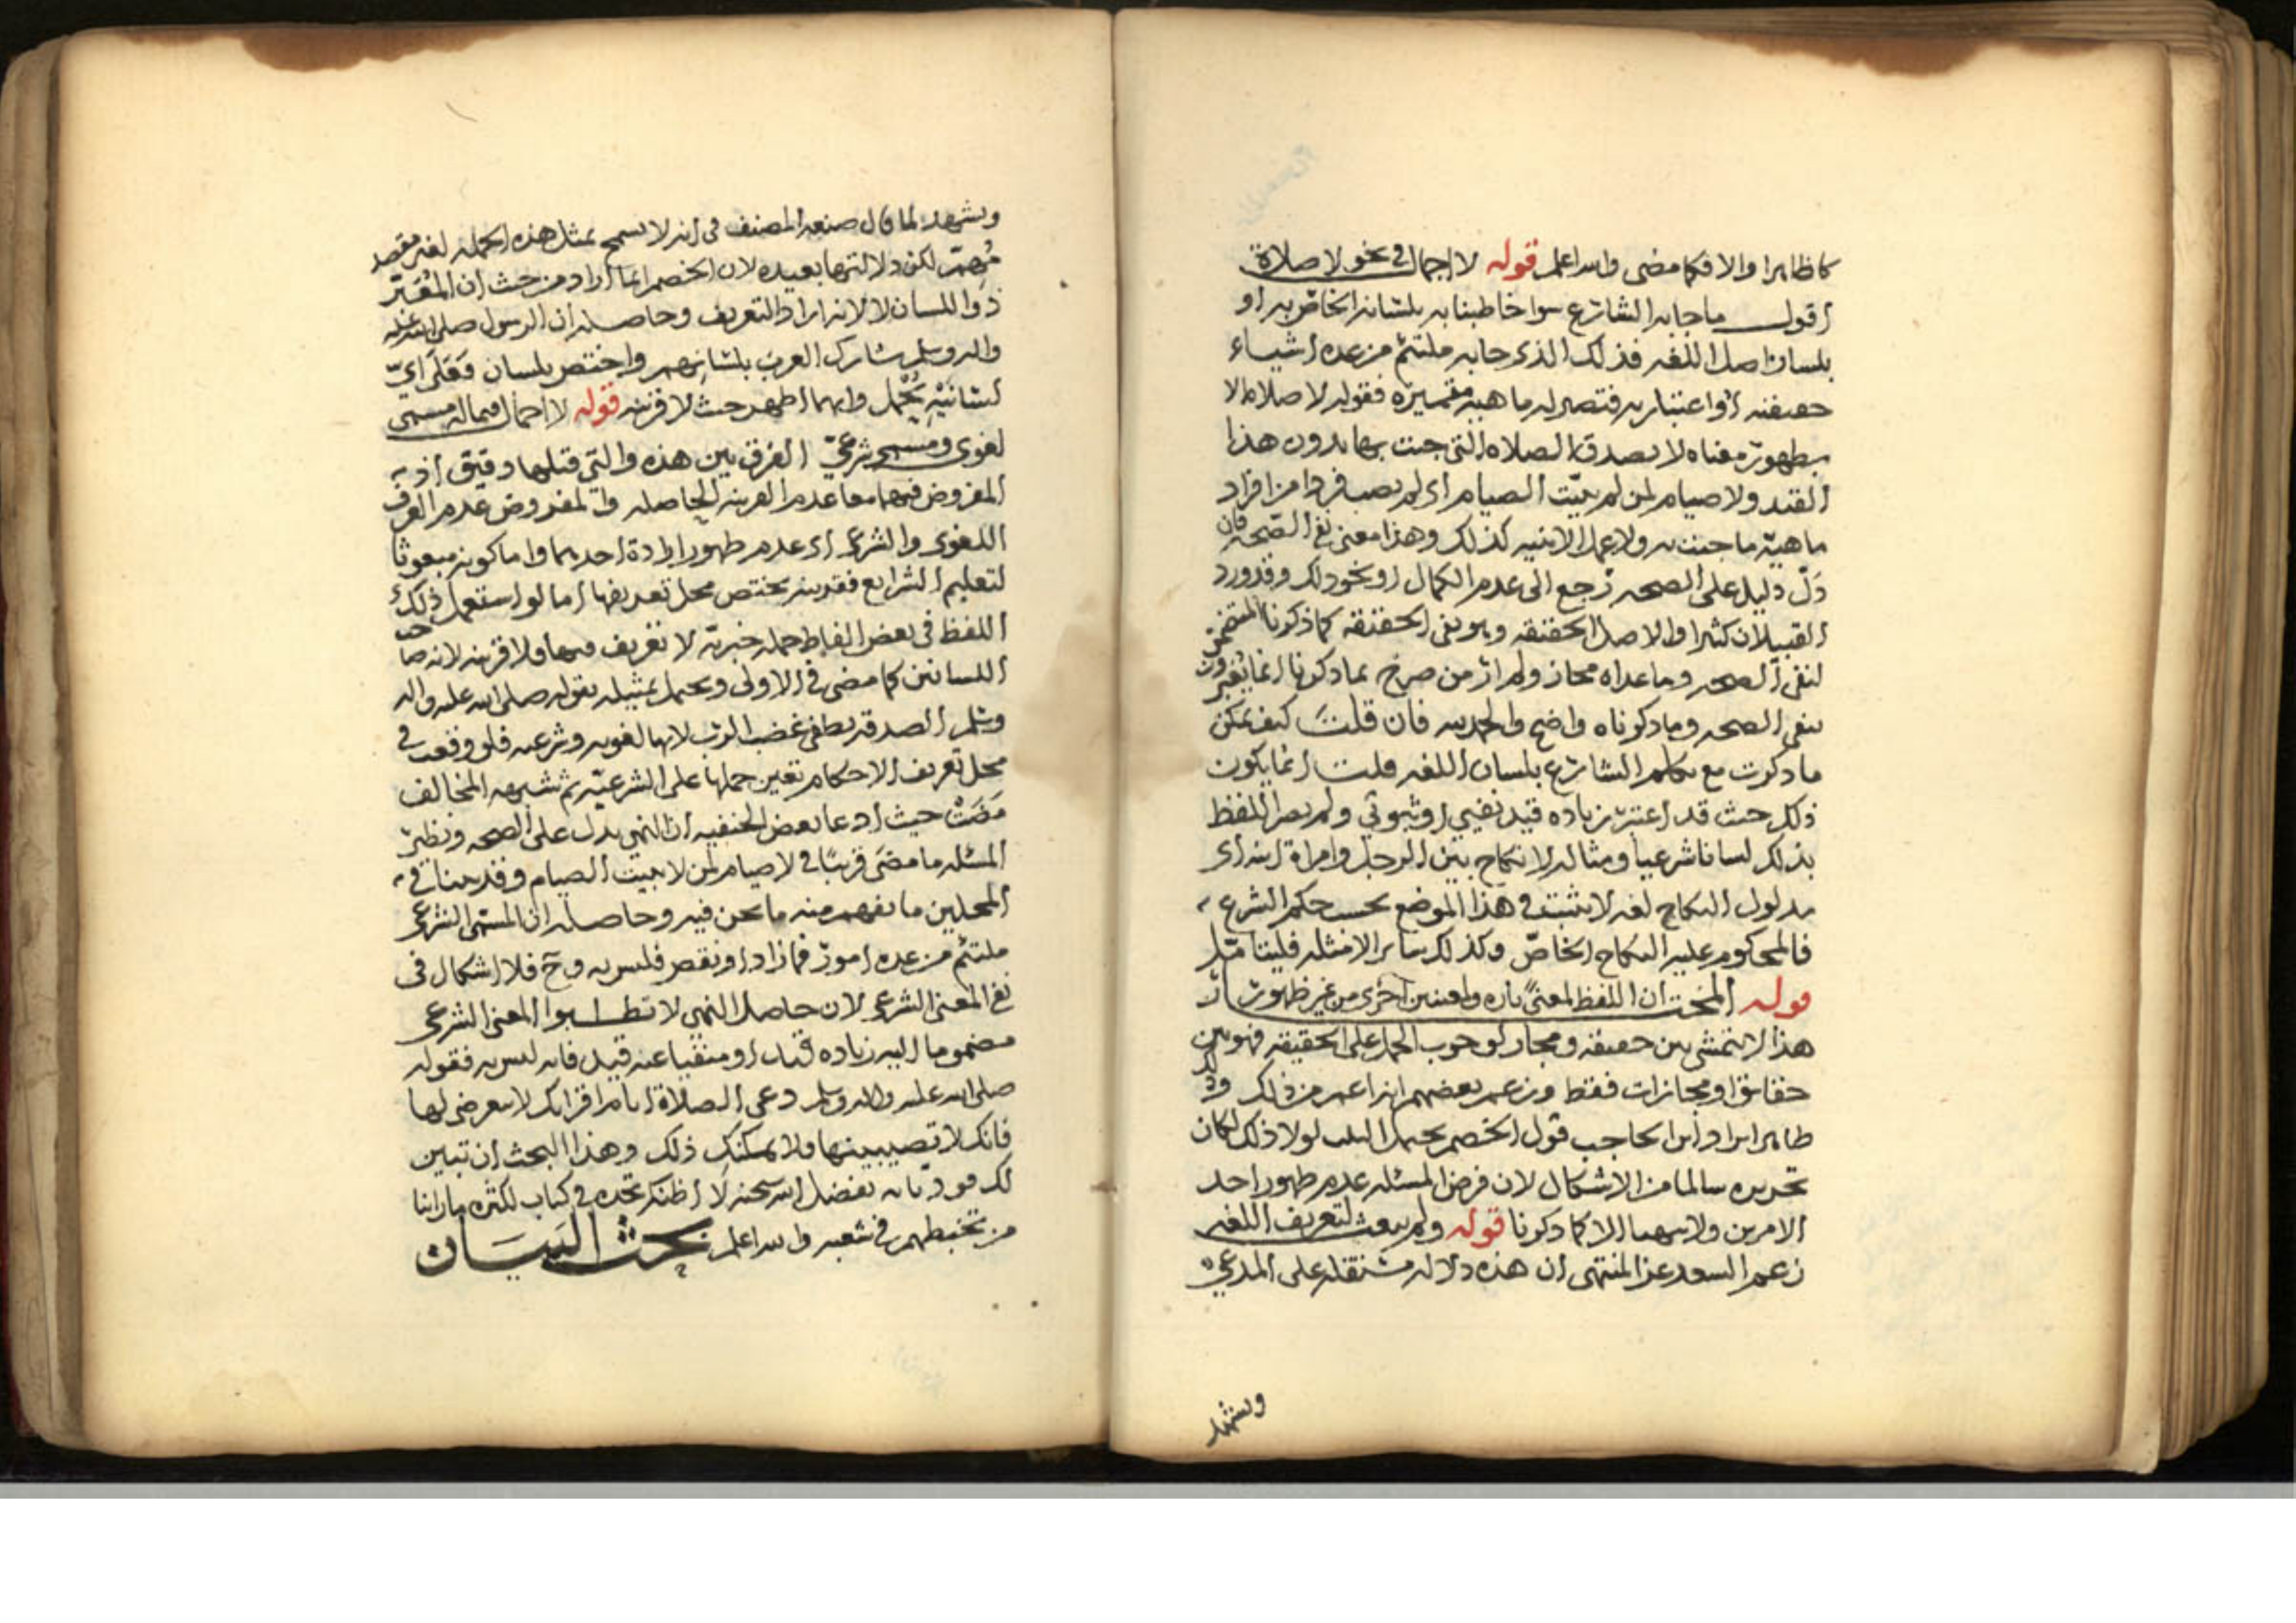 كاظاهرا والا فكما مضى والله اعلم قوله لا اجمال في نحو لا صلاة
اقول ما جا به الشارع سوا خاطبنا به بلسانه الخاص به او
بلسان اهل اللغه فذلك الذي جا به ملتئم من عده اشياء
حقيقته او اعتباريه فتصير له ماهيه متميزه فقوله لا صلاه الا
بطهور معناه لا يصدق الصلاه التي جئت بها بدون هذا
القيد ولا صيام لمن لم يبيّت الصيام اي لم يصب فردا من افراد
ماهيّة ما جئت به ولا عمل الا بنيه كذلك وهذا معنى نفي الصحه فان
دَلّ دليل على الصحه رجع الى عدم الكمال او نحو ذلك وقد ورد
القبيلان كثيرا والاصل الحقيقه وهو نفي الحقيقه كما ذكرنا
لنفي الصحه وما عداه مجاز ولم ار من صرح بما ذكرنا انما يعبرون
بنفي الصحه وما ذكرناه واضح والحمد لله فان قلتَ كيف يمكن
ما ذكرت مع تكلم الشارع بلسان اللغه قلت انما يكون
ذلك حيث قد اعتبر زياده قيد نفيي او ثبوتي ولم يصر اللفظ
بذلك لسانا شرعيا ومثاله لا نكاح بين الرجل وامراة ابنه اي
مدلول النكاح لغه لا يثبت في هذا الموضع بحسب حكم الشرع
فالمحكوم عليه النكاح الخاصّ وكذلك سائر الامثله فليتامّل
قوله المخت ان اللفظ لمعنىً تاره ولمعنيين اخرى من غير ظهور
هذا لا يتمشى بين حقيقه ومجاز لوجوب الحمل على الحقيقه فهو بين
حقائق او مجازات فقط وزعم بعضهم انه اعم من ذلك
ظاهر ايراد ابن الحاجب قول الخصم يحتمل الثلث لولا ذلك لكان
تحريره سالما من الاشكال لان فرض المسئله عدم ظهور احد
الامرين ولا يتهيا الا كما ذكرنا قوله ولم يبعث لتعريف اللغه
زعم السعد عن المنتهى ان هذه دلاله مستقله على المدعى
ويشهد
ويشهد لما قال صنعه المصنف في انه لا يسمح بمثل هذه الجمله لغير مقصد
مُهِمّ لكن دلالتها بعيده لان الخصم انما اراد من حيث ان المُعَبِّر
ذو اللسان لا لانه اراد التعريف وحاصله ان الرسول صلى الله عليه
واله وسلم شارك العرب بلسانهم واختص بلسان فَعَلَى ايّ
لسَانَيْهِ يُحْمل وايهما اظهر حيث لا قرينه قوله لا اجمال فيما له مسمى
لغوي ومسمى شرعيّ الفرق بين هذه والتي قبلها دقيق اذ
المفروض فيهما معا عدم القرينه الحاصله والمفروض عدم العرف
اللغوي والشرعي اي عدم ظهور ارادة احدهما واما كونه مبعوثا
لتعليم الشرايع فقرينه تختص محل تعريفها اما لو استعمل ذلك
اللفظ في بعض الفاظ جمله خبريّه لا تعريف فيها ولا قرينه لانه صاحب
اللسانين كما مضى في الاولى ويحتمل تمثيله بقوله صلى الله عليه واله
وسلم الصدقه تطفي غضب الرب لانها لغويه وشرعيه فلو وقعت في
محل تعريف الاحكام تعين حملها على الشرعيّه ثم شبهه المخالف
مَضَتْ حيث ادعا بعض الحنفيه ان النهي يدل على الصحه ونظير
المسئله ما مضَى قريبًا في لا صيام لمن لا يبيت الصيام وقد بينا في
المحلين ما يفهم منه ما نحن فيه وحاصله ان المسمّى الشرعي
ملتئم من عده امور فما زاد او نقص فليس به وح فلا اشكال في
نفي المعنى الشرعي لان حاصل النهي لا تطلبوا المعنى الشرعي
مضموما اليه زياده قيد او منفيا عنه قيد فانه ليس به فقوله
صلى الله عليه واله وسلم دعي الصلاة ايام اقرائك لا تتعرضي لها
فانك لا تصيبينها ولا يمكنكِ ذلك وهذا البحث ان تبين
لك فهو ذاته بفضل الله سبحانه لا اظنك تجده في كتاب لكثره ما راينا
من تخبطهم في شعبه والله اعلم بحث البَيَان